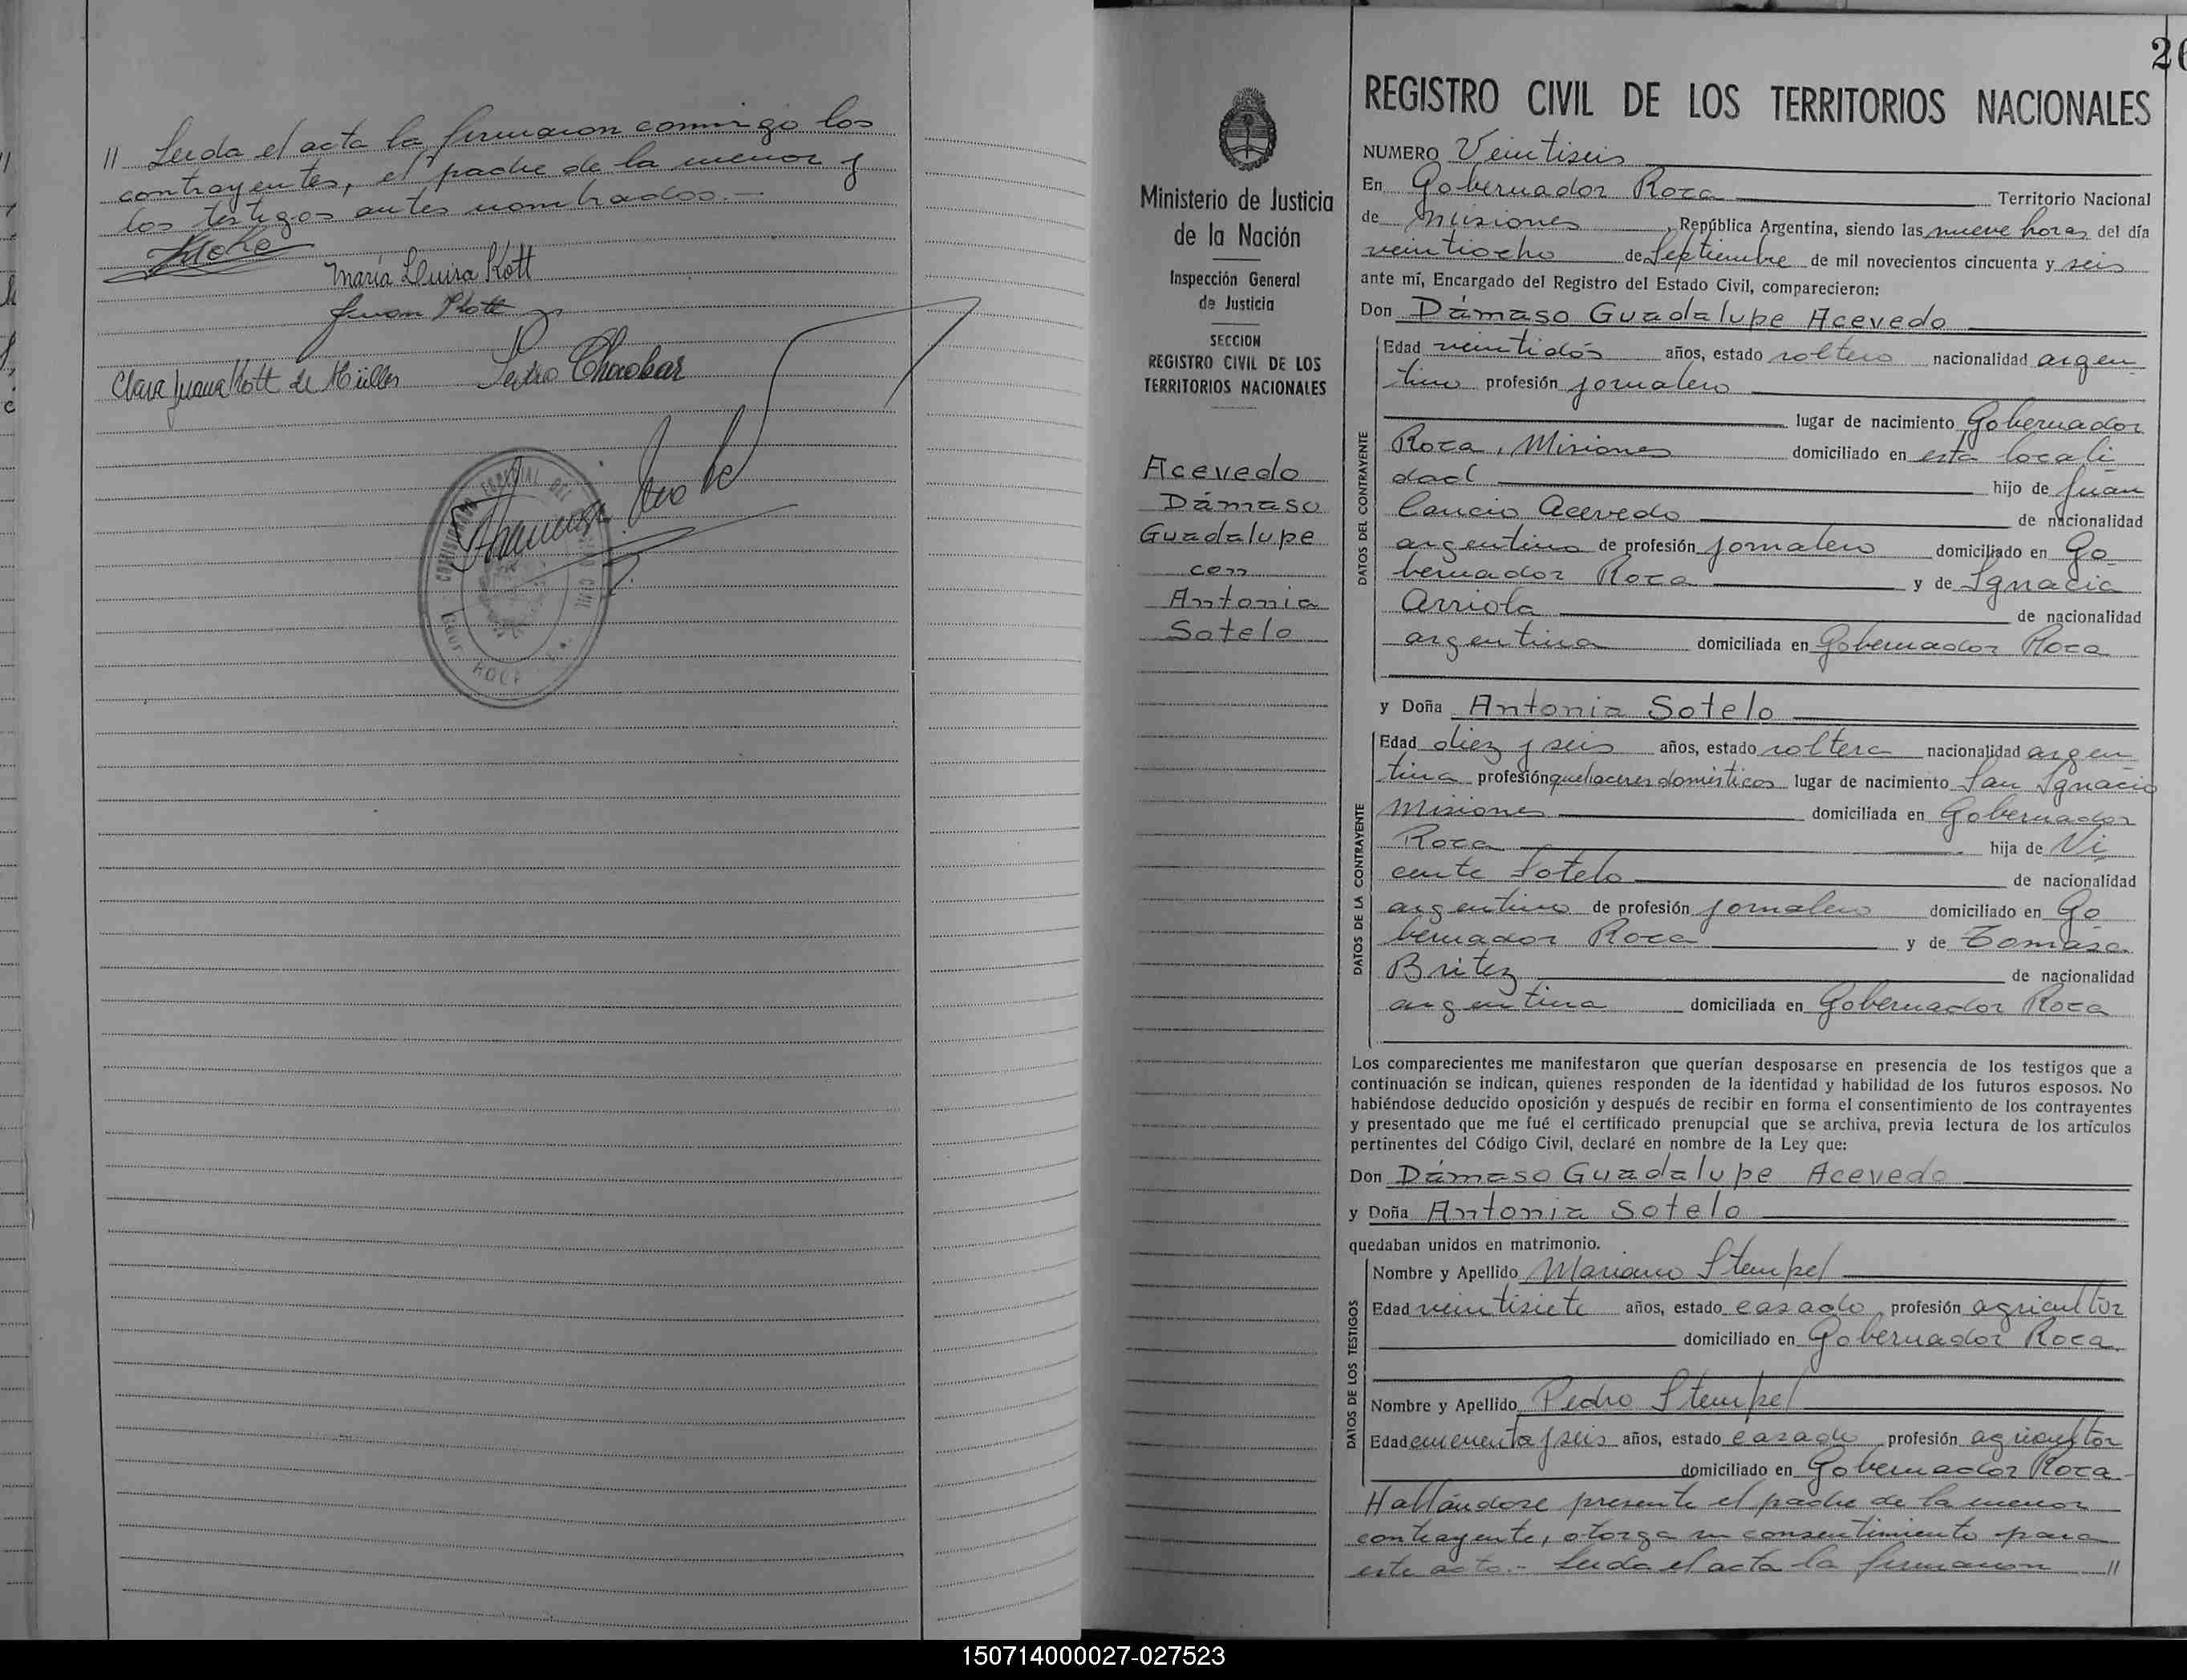 // Leida el acta la firmaron conmigo los
contrayentes, el padre de la menor y
los testigos antes nombrados.-
María Luisa Kott
Juan Kott
Clara Juana Kott de Müller
Pedro
ROCA
26
REGISTRO CIVIL DE LOS TERRITORIOS NACIONALES
Ministerio de Justicia
de la Nación
Inspección General
de Justicia
SECCION
REGISTRO CIVIL DE LOS
TERRITORIOS NACIONALES
Acevedo
Dámaso
Guadalupe
con
Antonia
Sotelo
NUMERO Veintiseis
En Gobernador Roca Territorio Nacional
de Misiones, República Argentina, siendo las nueve horas del día
veintiocho de Septiembre de mil novecientos cincuenta y seis
ante mí, Encargado del Registro del Estado Civil, comparecieron:
Don Dámaso Guadalupe Acevedo
DATOS DEL CONTRAYENTE
Edad veintidós años, estado soltero nacionalidad argen
tino profesión jornalero
lugar de nacimiento Gobernador
Roca, Misiones domiciliado en esta locali
dad hijo de Juan
Cancio Acevedo de nacionalidad
argentino de profesión jornalero domiciliado en Go
bernador Roca y de Ignacia
Arriola de nacionalidad
argentina domiciliada en Gobernador Roca
y Doña Antonia Sotelo
DATOS DE LA CONTRAYENTE
Edad diez y seis años, estado soltera nacionalidad argen
tina profesión quehaceres domésticos lugar de nacimiento San Ignacio
Misiones domiciliada en Gobernador
Roca hija de Vi
cente Sotelo de nacionalidad
argentino de profesión jornalero domiciliado en Go
bernador Roca y de Tomasa
Britez de nacionalidad
argentina domiciliada en Gobernador Roca
Los comparecientes me manifestaron que querían desposarse en presencia de los testigos que a
continuación se indican, quienes responden de la identidad y habilidad de los futuros esposos. No
habiéndose deducido oposición y después de recibir en forma el consentimiento de los contrayentes
y presentado que me fué el certificado prenupcial que se archiva, previa lectura de los artículos
pertinentes del Código Civil, declaré en nombre de la Ley que:
Don Dámaso Guadalupe Acevedo
y Doña Antonia Sotelo
quedaban unidos en matrimonio.
DATOS DE LOS TESTIGOS
Nombre y Apellido Mariano Stempel
Edad veintisiete años, estado casado, profesión agricultor
domiciliado en Gobernador Roca
Nombre y Apellido Pedro Stempel
Edad cincuenta y seis años, estado casado profesión agricultor
domiciliado en Gobernador Roca
Hallándose presente el padre de la menor
contrayente, otorga su consentimiento para
este acto.- Leida el acta la firmaron //
150714000027-027523